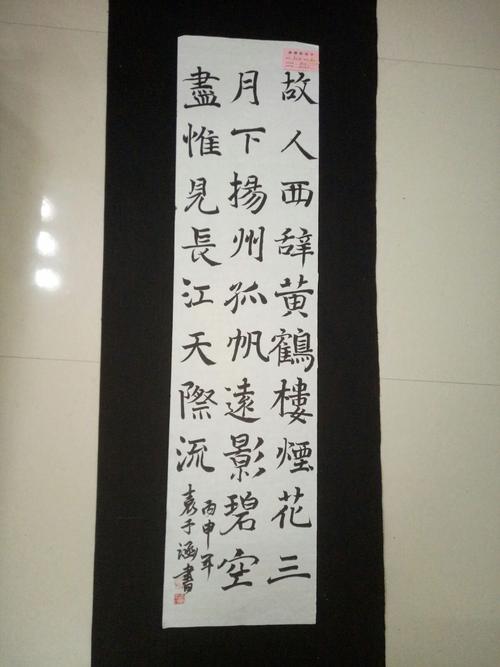 故人西辞黄鶴樓煙花三
月下揚州孤帆遠影碧空
盡惟見長江天際流
丙申年
袁子涵書